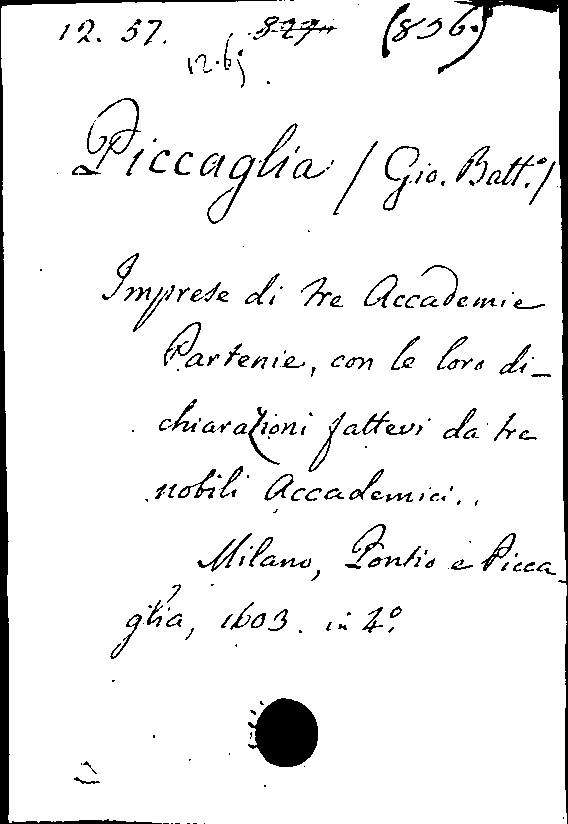 12. 57. 827 (836.)
12.6j
Piccaglia / Gio. Batt.ª /
Imprese di tre Accademie
Partenie, con le loro di-
chiarazioni fattevi da tre
nobili Accademici..
Milano, Pontio e Picca-
glia, 1603. in 4º.